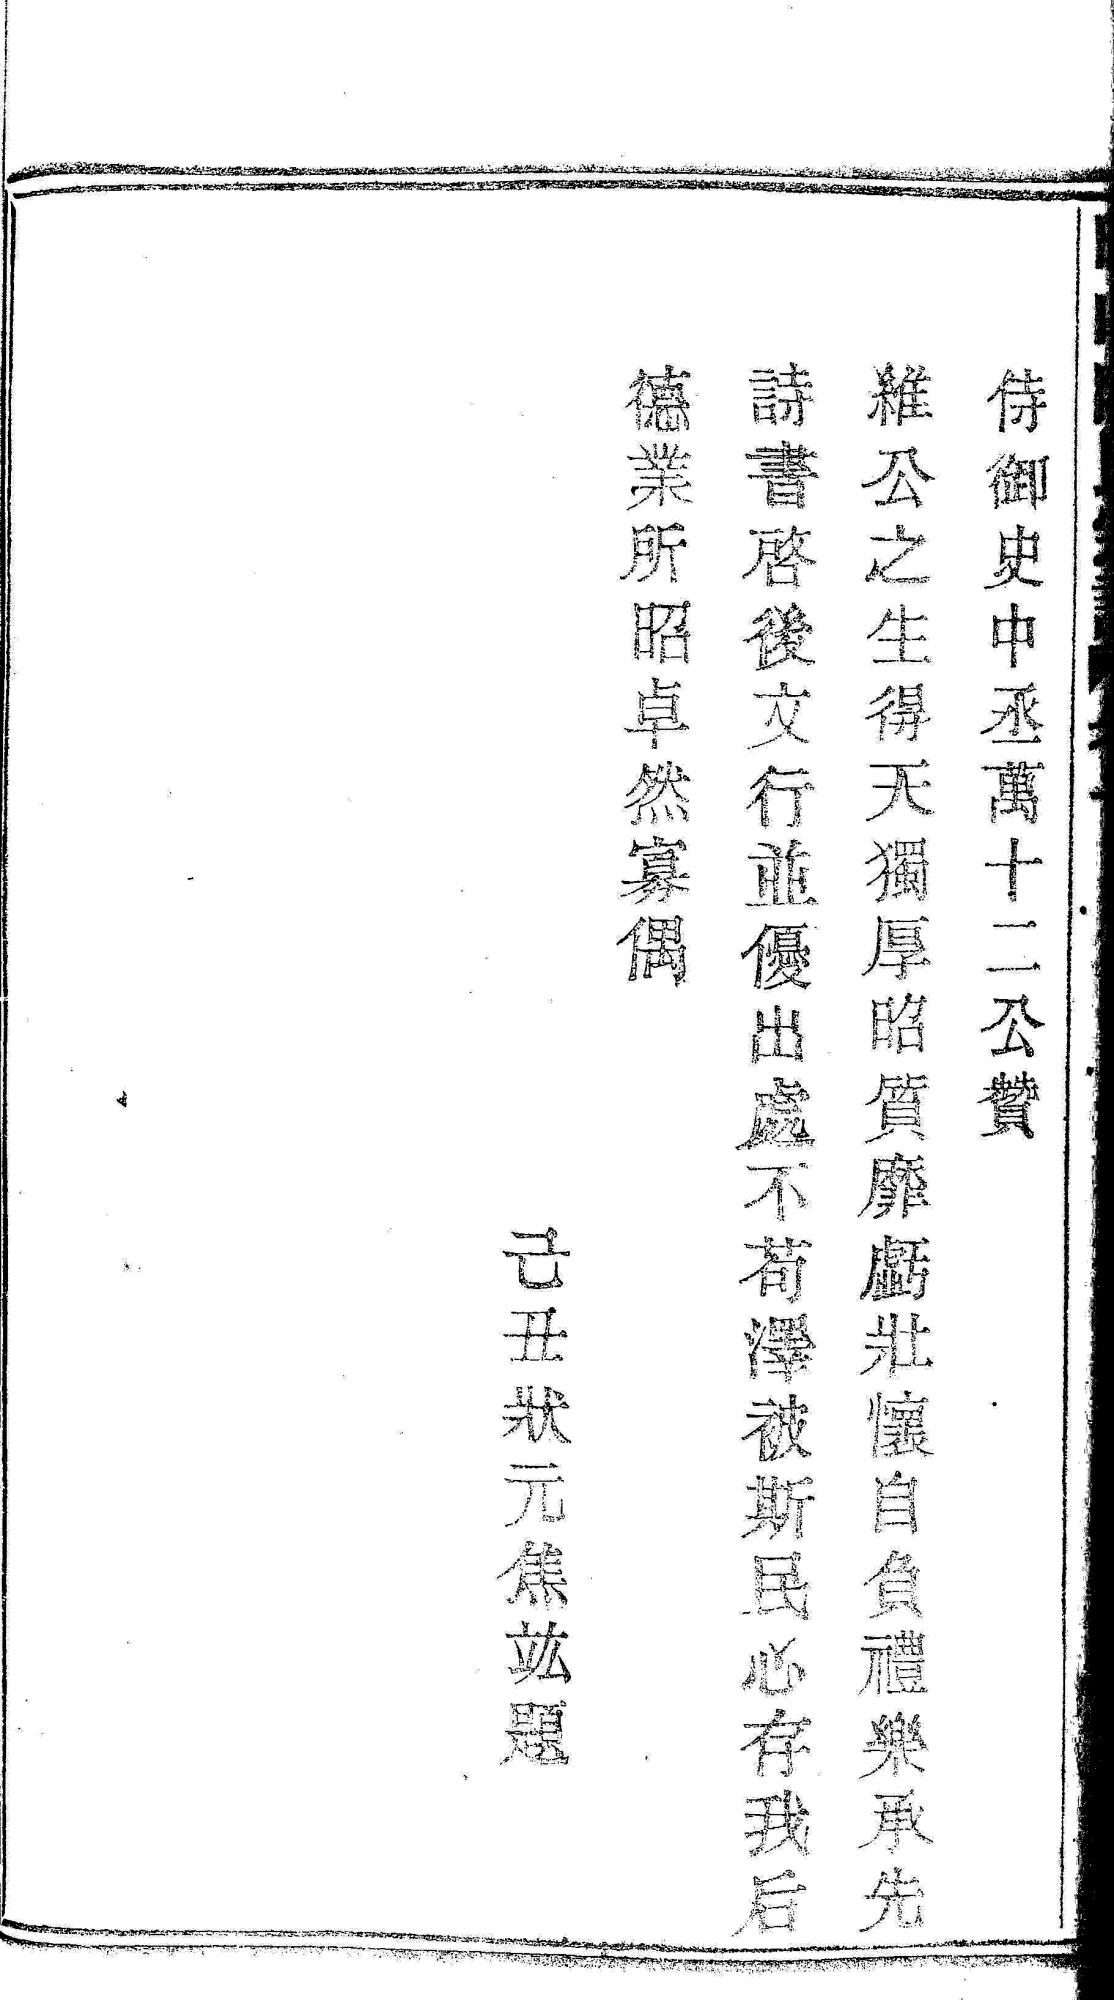 侍御史中丞萬十二公贊
維公之生得天獨厚昭質靡虧壯懷自負禮樂承先
詩書啓後文行並優出處不苟澤被斯民心存我后
德業所昭卓然寡偶
己丑狀元焦竑題